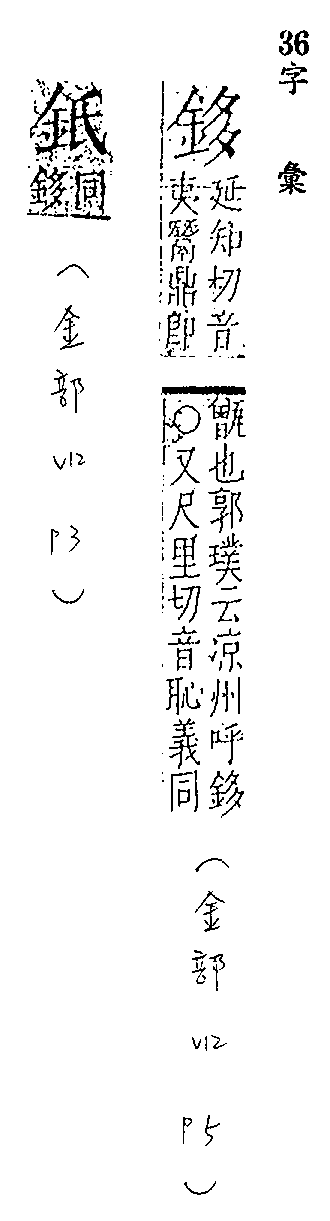 36字 彙
鉹
延知切音
夷鬵鼎卽
甑也郭璞云凉州呼鉹
○又尺里切音恥義同
(金部 V12 P5)
同
鉹
(金部 V12 P3)